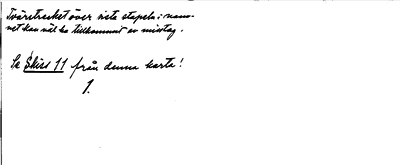 Tvärstrecket över sista stapeln i nam-
net kan väl ha tillkommit av misstag.
Se Skiss 11 från denna karta!
1.